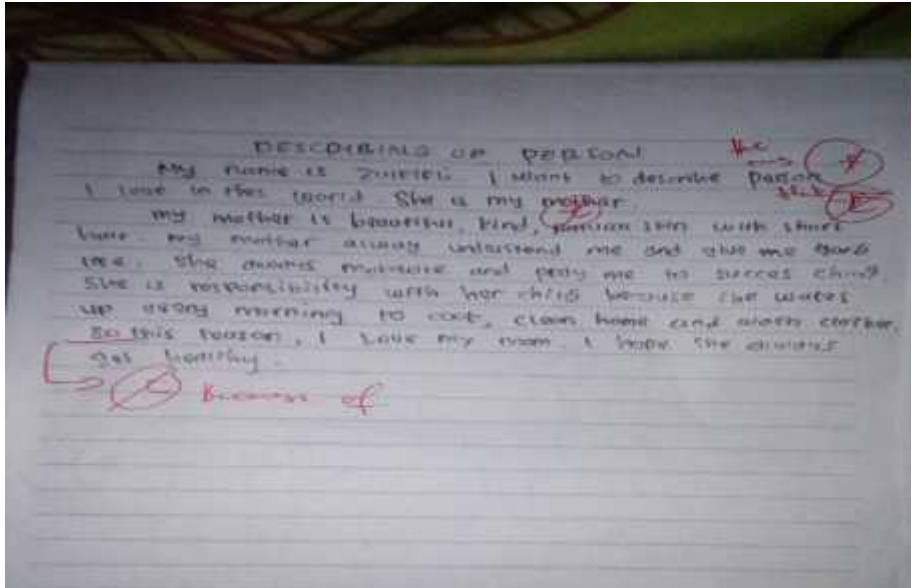 DESCRIBING OF PERSON
My name is I want to describe person
I love in this world. She is my mother.
My mother is beautiful, kind, skin with short
hair. My mother alway understand me and give me
She always motivate and pray me to succes child.
She is responsibility with her child because she wakes
up every morning to cook, clean home and wash clothes.
So this reason, I love my mom. I hope she always
get healthy.
Because of